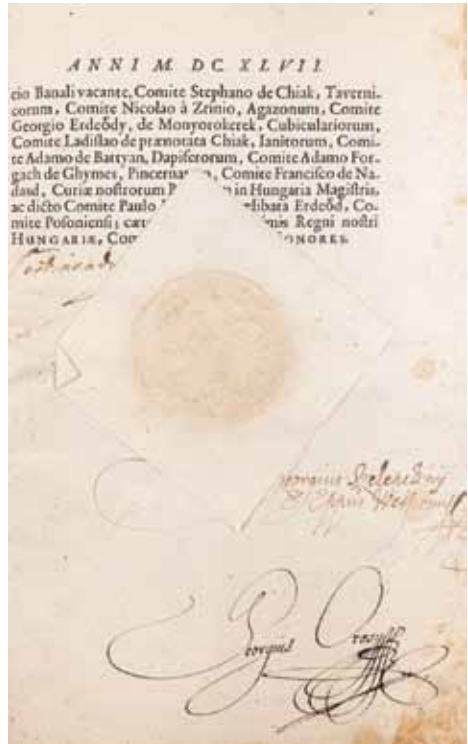 ANNI M. DC XLVII.
cio Banali vacante, Comite Stephano de Chiak, Taverni-
corum, Comite Nicolao à Zrinio, Agazonum, Comite
Georgio Erdeődy, de Monyorokerek, Cubiculariorum,
Comite Ladislao de prænotata Chiak, Ianitorum, Comi-
te Adamo de Battyan, Dapiferorum, Comite Adamo For-
gach de Ghymes, Pincernar, Comite Francisco de Na-
dasd, Curiæ nostrorum in Hungaria Magistris,
ac dicto Comite Paulo Erdeőd, Co-
mite Posoniensi; Regni nostri
HUNGARIÆ, HONORES.
Georgius